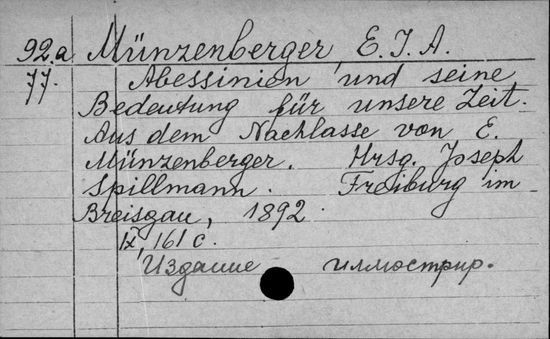 92.a Münzenberger, E. J. A.
77. Abessinien und seine
Bedeutung für unsere Zeit.
Aus dem Nachlasse von E.
Münzenberger. Hrsg. Joseph
Spillmann. Freiburg im
Breisgau, 1892.
IX, 161 с.
Издание иллюстрир.